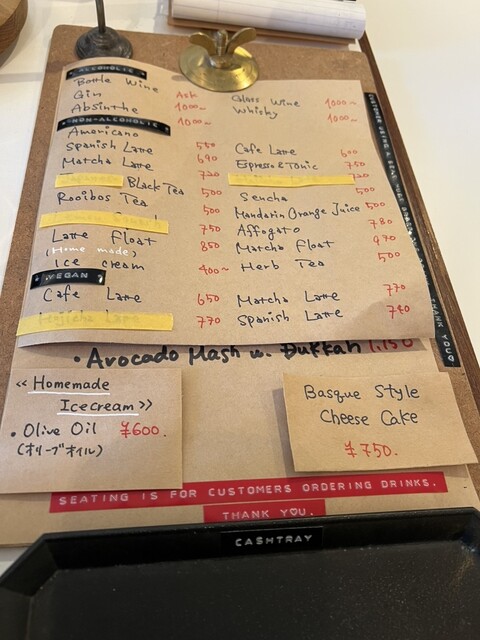 ALCOHOLIC
Bottle Wine Ask
Gin 1000~
Absinthe 1000~
Glass Wine 1000~
Whisky 1000~
NON-ALCOHOLIC
Americano 550
Spanish Latte 690
Matcha Latte 720
Black Tea 500
Rooibos Tea 500
750
Latte Float 850
(Home made)
Ice cream 400~
Cafe Latte 600
Espresso & Tonic 750
Sencha 500
Mandarin Orange Juice
Affogato 780
Matcha Float 970
Herb Tea 500
VEGAN
Cafe Latte 650
Hojicha Latte 770
Matcha Latte 770
Spanish Latte 740
THANK YOU
• Avocado Mash w. Dukkah 1,150
<< Homemade
Icecream >>
• Olive Oil ¥600.
(オリーブオイル)
Basque Style
Cheese Cake
¥750.
SEATING IS FOR CUSTOMERS ORDERING DRINKS.
THANK YOU.
CASHTRAY